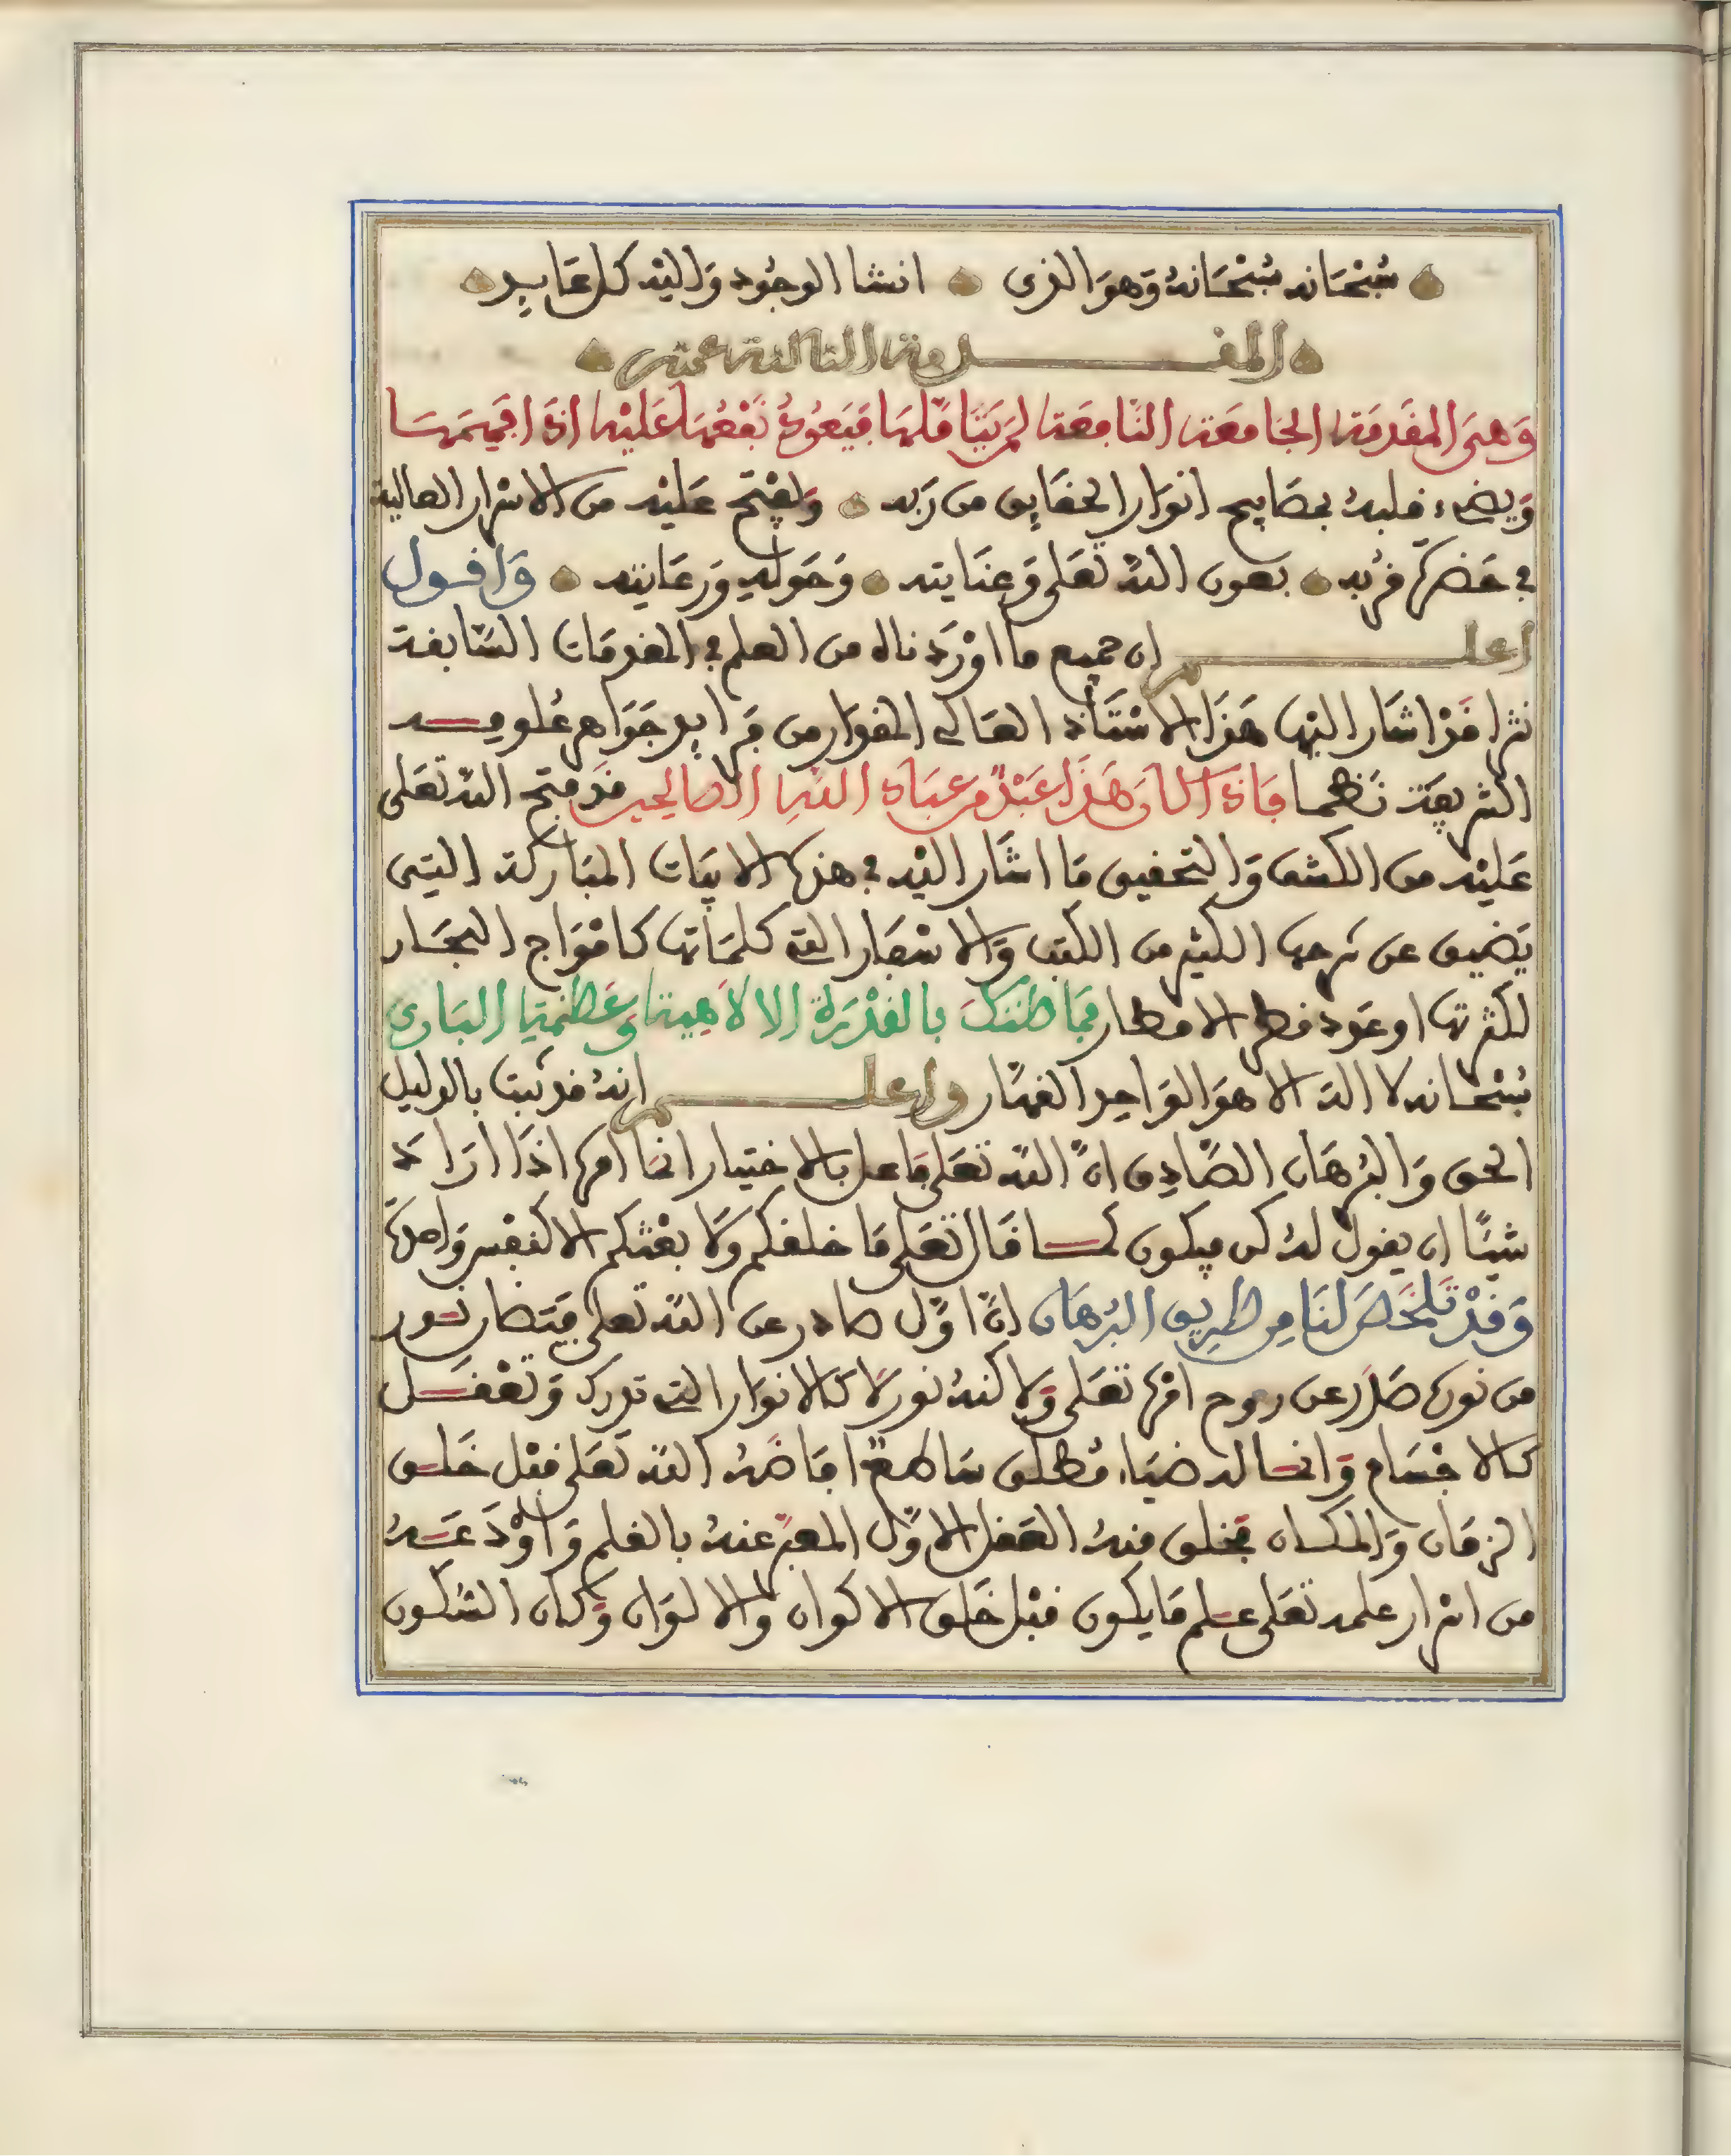 سُبْحَانه سُبْحَانهُ وَهوَ الذى انشا الوجُود وَاليْه كل عَايِد
المقدمة الثالثة عشر
وَهىَ المقَدمَة الجَامعَة النَّافعَة لمَ يَتَامَّلهَا فيَعُودُ نَفْعُهَا عَليْه اذَا فهمَهَا
وَيضىء قلبهُ بمصَابيح انوَار الحقَايق من رَبه وَيفْتح عَليْه من الاسْرار العالية
فى حَضرَة قرْبه بعون اللهِ تعَلى وَعنَايته وَحَوْلهِ وَرعَايته وَاقول
اعلم ان جميع ما اوْرَدناه من العلم فى المقدمَات السَّابقة
نثرا قدْ اشَار اليْهَا هَذَا الاسْتَاذ العَالى المقدار من فرَايد جوَاهر علومه
الشريعَة نَظما فَاذَا كَانَ هَذَا عَبْدٌ مِن عبَادِ اللهِ الصالحين قَد فتح الله تعَلى
عَليْه من الكشف وَالتحقيق مَا اشَار اليْه فى هذه الابيَات المبَاركة التى
يَضيق عن شرحهَا الكثير من الكتب وَالاسْفار التى كلمَاتهَا كامْوَاج البحَار
لكثرتهَا او عَدد قطر الامطار فمَا ظنكَ بالقدْرَة الالاهيَة وَعَظمَة البَارى
سُبْحَانه لا اله الا هوَ الوَاحِد القهَّار واعلم انهُ قد ثبت بالدليل
الحق وَالبرْهَان الصَّادِق انَّ الله تعَلى فاعل بالاختيار انمَا امره اذَا ارَاد
شيْئًا ان يقولَ لهُ كن فيكون كما قَال تعَلى مَا خلقكم وَلا بعْثكم الا كنفْس وَاحدَة
وَقدْ تَلخَّصَ لنَا مِن طرِيق البُرهَان انَّ اوَّل صادر عن الله تعلى فيَضَان نور
من نوره صَدَر عن روح امْره تعَلى وَلاكنهُ نور لا كالانوَار التى تدرك وَتعْقل
كالاجْسَام وَانما له ضيَاء مُطلق سَاطعٌ افَاضَهُ الله تعَلى قبْل خَلق
الزمَان وَالمكان فخلق منهُ العَقل الاوَّل المعبَّر عنهُ بالقلم وَاوْدَعَهُ
من اسْرار علمه تعَلى علم مَا يكون قبْل خَلق الاكوان وَالالوَان وَكان السّكون